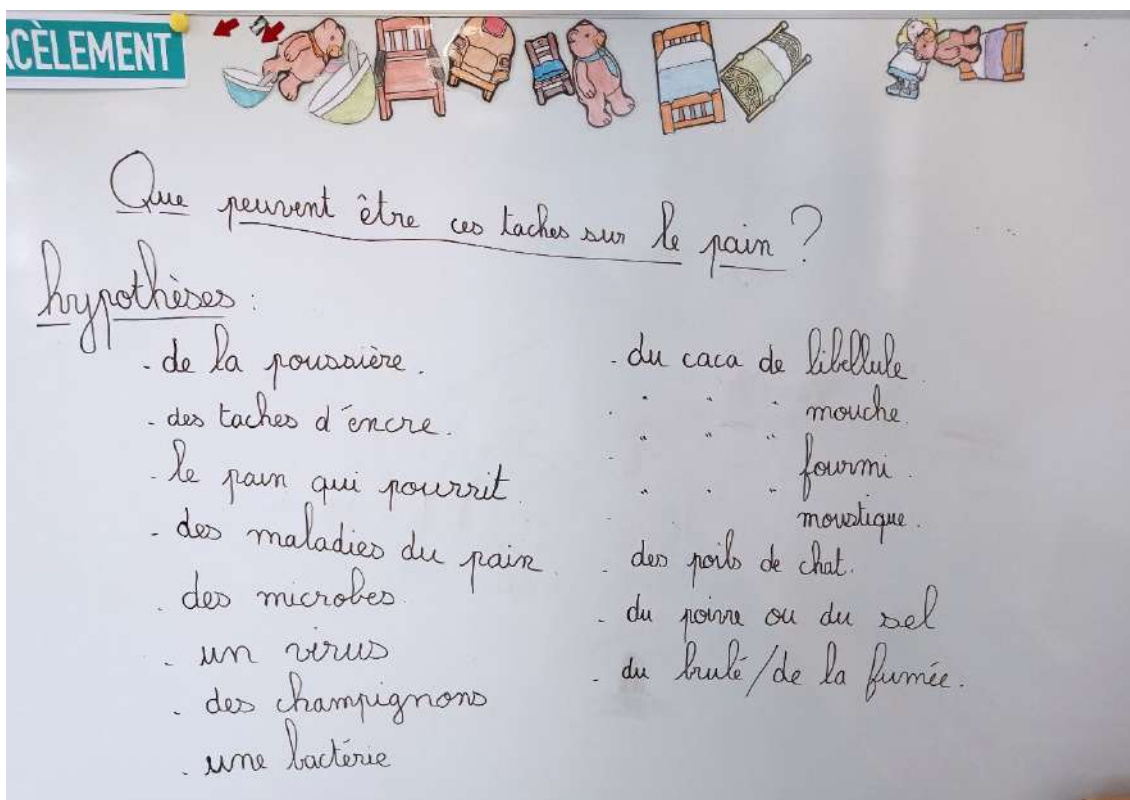 RCÈLEMENT
Que peuvent être ces taches sur le pain ?
hypothèses :
- de la poussière.
- des taches d'encre.
- le pain qui pourrit.
- des maladies du pain.
- des microbes.
- un virus
- des champignons
- une bactérie
- du caca de libellule.
- " " " mouche.
- " " " fourmi.
- " " " moustique.
- des poils de chat.
- du poivre ou du sel
- du brulé/de la fumée.